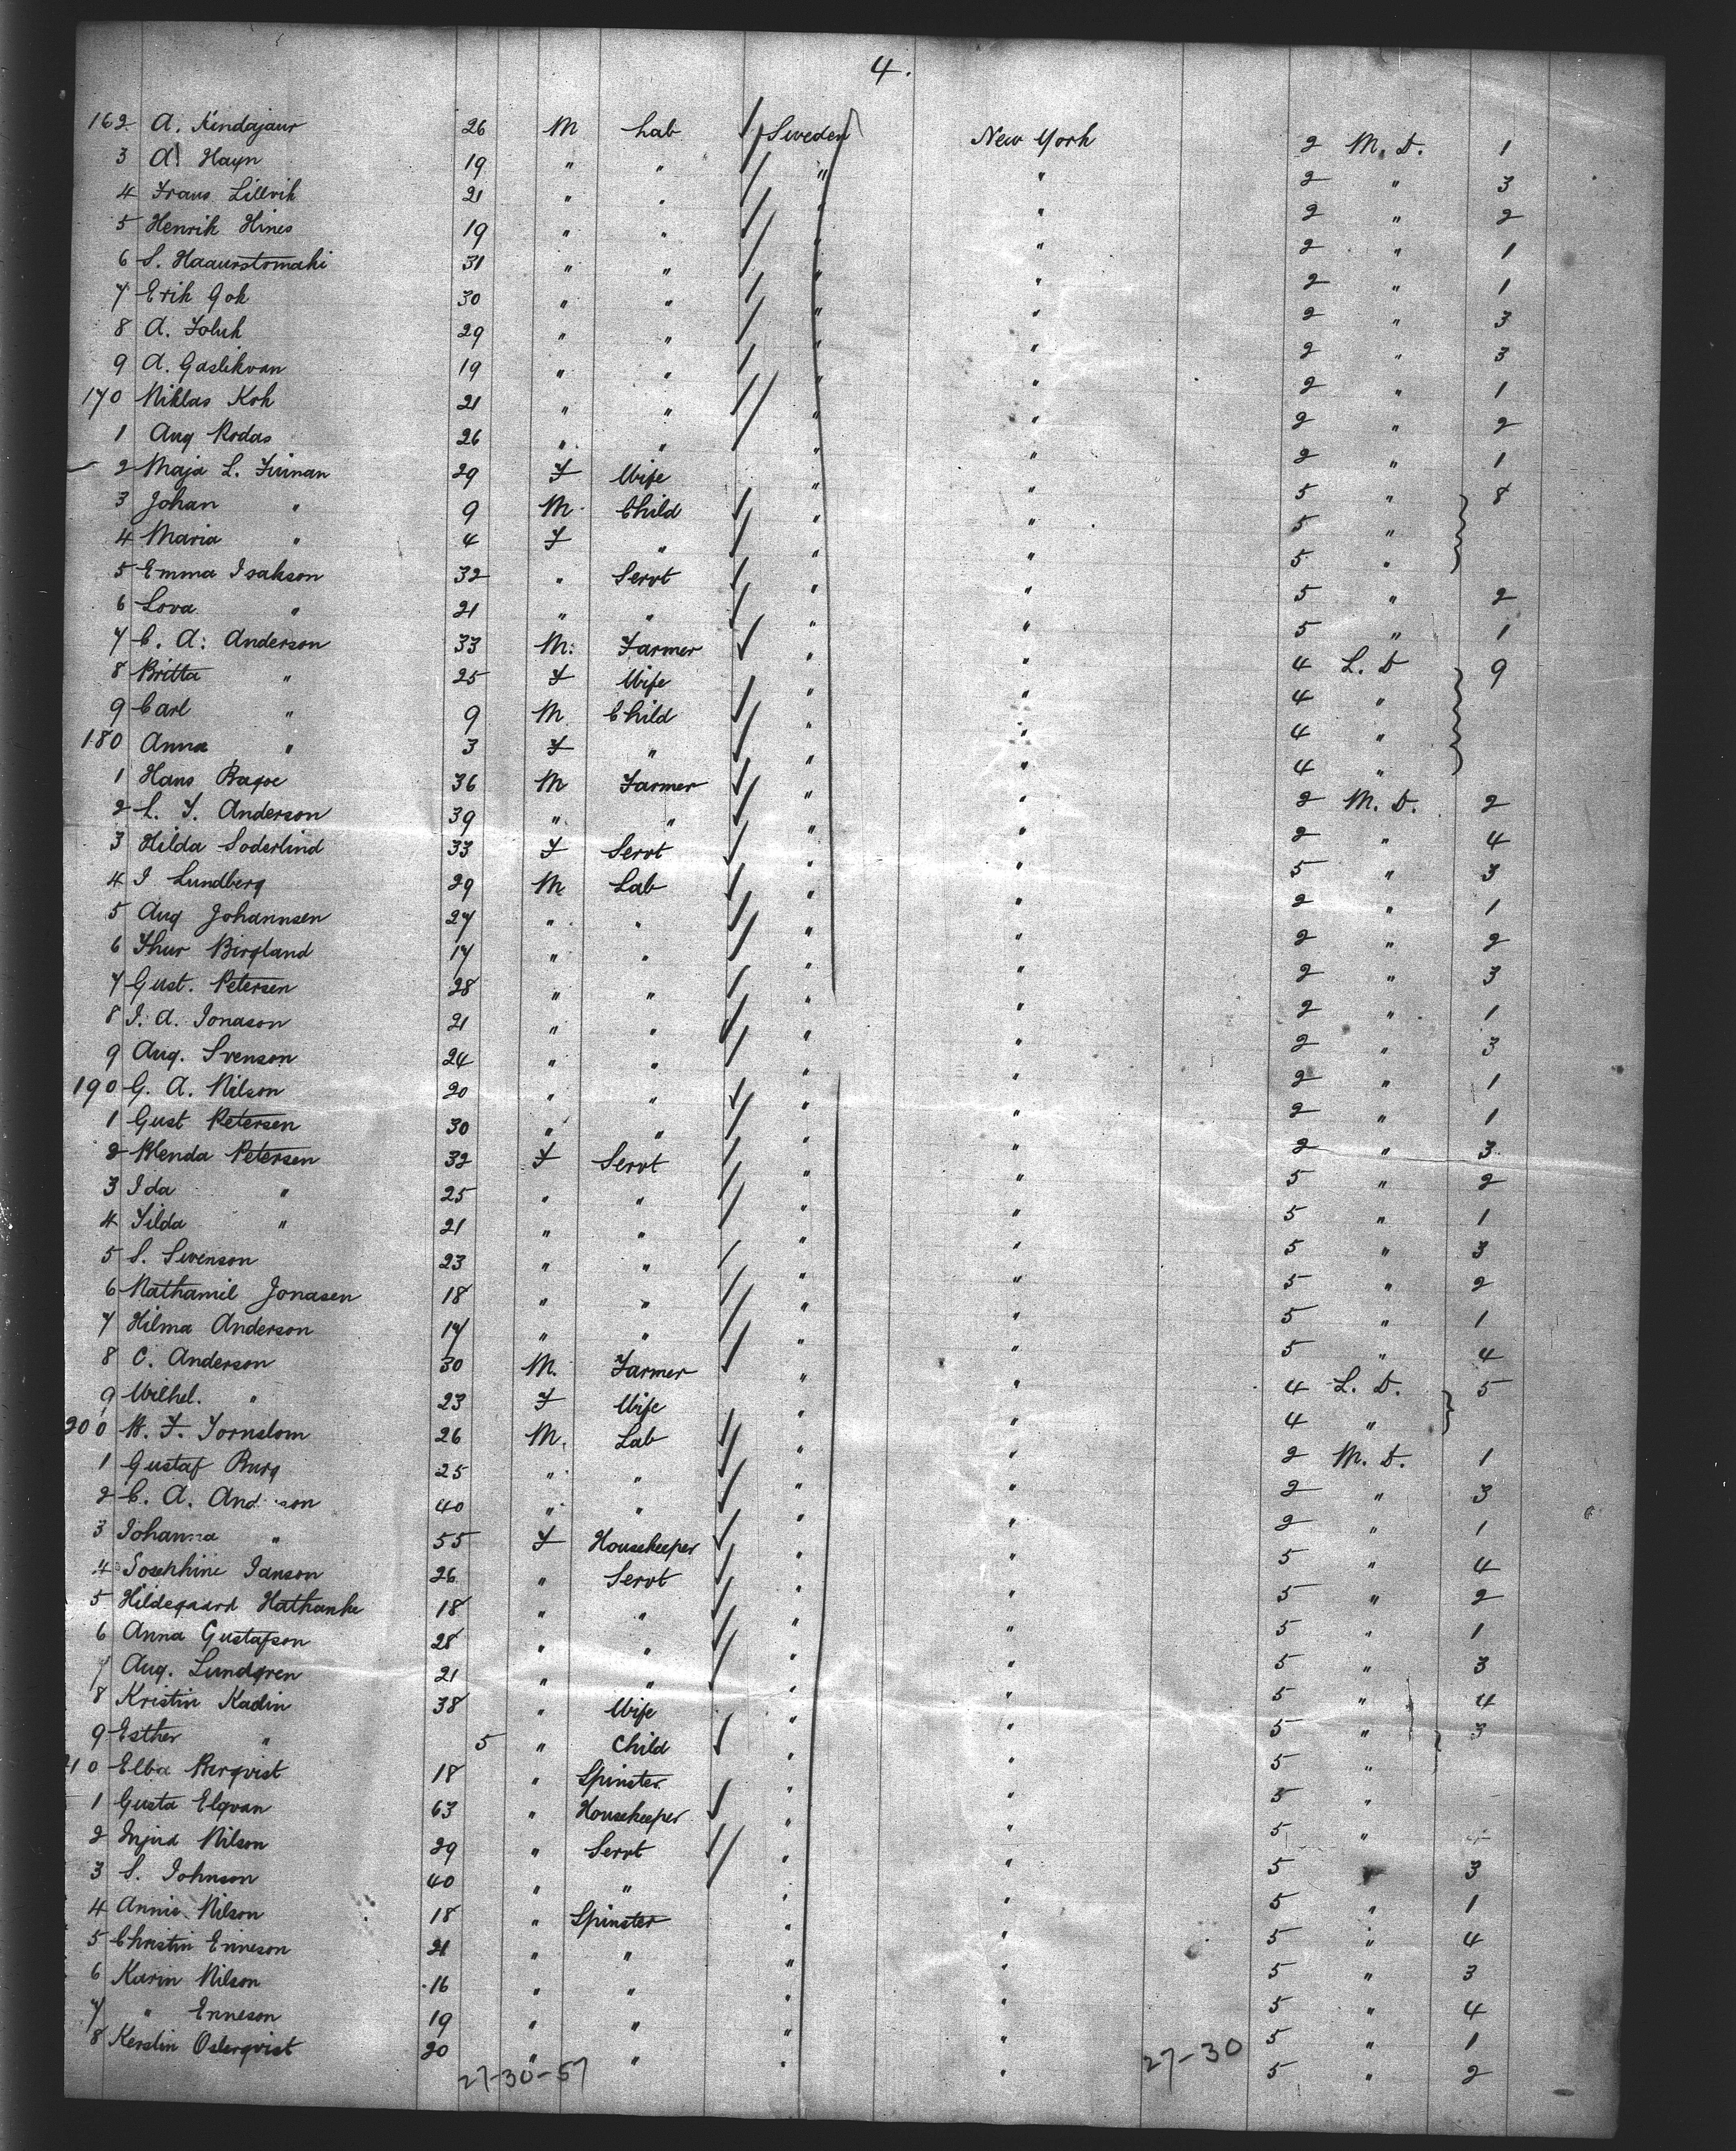 4.
162 A. Kindajaur 26 M Lab Sweden New York 2 M. D. 1
3 A Hayn 19 " " " " 2 " 3
4 Frans Lillvik 21 " " " " 2 " 2
5 Henrik Hines 19 " " " " 2 " 1
6 S. Haaurstomaki 31 " " " " 2 " 1
7 Erik Gok 30 " " " " 2 " 3
8 A. Foluk 29 " " " " 2 " 3
9 A. Gaslikvan 19 " " " " 2 " 1
170 Niklas Koh 21 " " " " 2 " 2
1 Aug Rodas 26 " " " " 2 " 1
2 Maja L. Finnan 29 F Wife " " 5 " 8
3 Johan " 9 M Child " " 5 "
4 Maria " 4 F " " " 5 "
5 Emma Isakson 32 " Servt " " 5 " 2
6 Lova " 21 " " " " 5 " 1
7 C. A. Anderson 33 M. Farmer " " 4 L. D 9
8 Britta " 25 F Wife " " 4 "
9 Carl " 9 M Child " " 4 "
180 Anna " 3 F " " " 4 "
1 Hans Bagoe 36 M Farmer " " 2 M. D. 2
2 L. F. Anderson 39 " " " " 2 " 4
3 Hilda Soderlind 33 F Servt " " 5 " 3
4 I Lundberg 29 M Lab " " 2 " 1
5 Aug Johannsen 27 " " " " 2 " 2
6 Thur Birgland 17 " " " " 2 " 3
7 Gust. Petersen 28 " " " " 2 " 1
8 I. A. Jonason 21 " " " " 2 " 3
9 Aug. Svenson 24 " " " " 2 " 1
190 G. A. Nilson 20 " " " " 2 " 1
1 Gust Petersen 30 " " " " 2 " 3
2 Blenda Petersen 32 F Servt " " 5 " 2
3 Ida " 25 " " " " 5 " 1
4 Tilda " 21 " " " " 5 " 3
5 S. Swenson 23 " " " " 5 " 2
6 Nathamil Jonasen 18 " " " " 5 " 1
7 Hilma Anderson 17 " " " " 5 " 4
8 C. Anderson 30 M. Farmer " " 4 L. D. 5
9 Wilhel. " 23 F Wife " " 4 "
200 W. F. Tornslom 26 M. Lab " " 2 M. D. 1
1 Gustaf Burg 25 " " " " 2 " 3
2 C. A. And son 40 " " " " 2 " 1
3 Johanna " 55 F Housekeeper " " 5 " 4
4 Josephine Janson 26 " Servt " " 5 " 2
5 Hildegaard Hathanke 18 " " " " 5 " 1
6 Anna Gustafson 28 " " " " 5 " 3
7 Aug. Lundgren 21 " " " " 5 " 4
8 Kristin Kadin 38 " Wife " " 5 " 3
9 Esther " 5 " Child " " 5 "
210 Elba Bergvist 18 " Spinster " " 5 "
1 Gusta Elgvan 63 " Housekeeper " " 5 "
2 Injird Nilson 29 " Servt " " 5 3
3 S. Johnson 40 " " " " 5 " 1
4 Annie Nilson 18 " Spinster " " 5 " 4
5 Christin Enneson 21 " " " " 5 " 3
6 Karin Nilson 16 " " " " 5 " 4
7 " Enneson 19 " " " " 5 " 1
8 Kerstin Osterqvist 20 " " " " 5 " 2
27-30-57 27-30